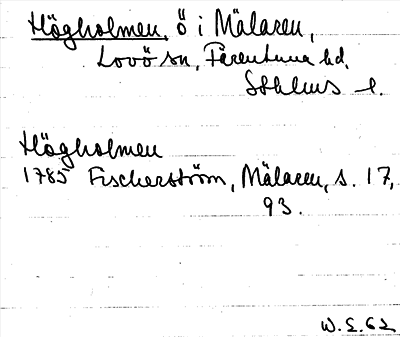 Högholmen, ö i Mälaren,
Lovö sn, Färentuna hd,
Sthlms l.
Högholmen
1785 Fischerström, Mälaren, s. 17,
93.
W.E.62